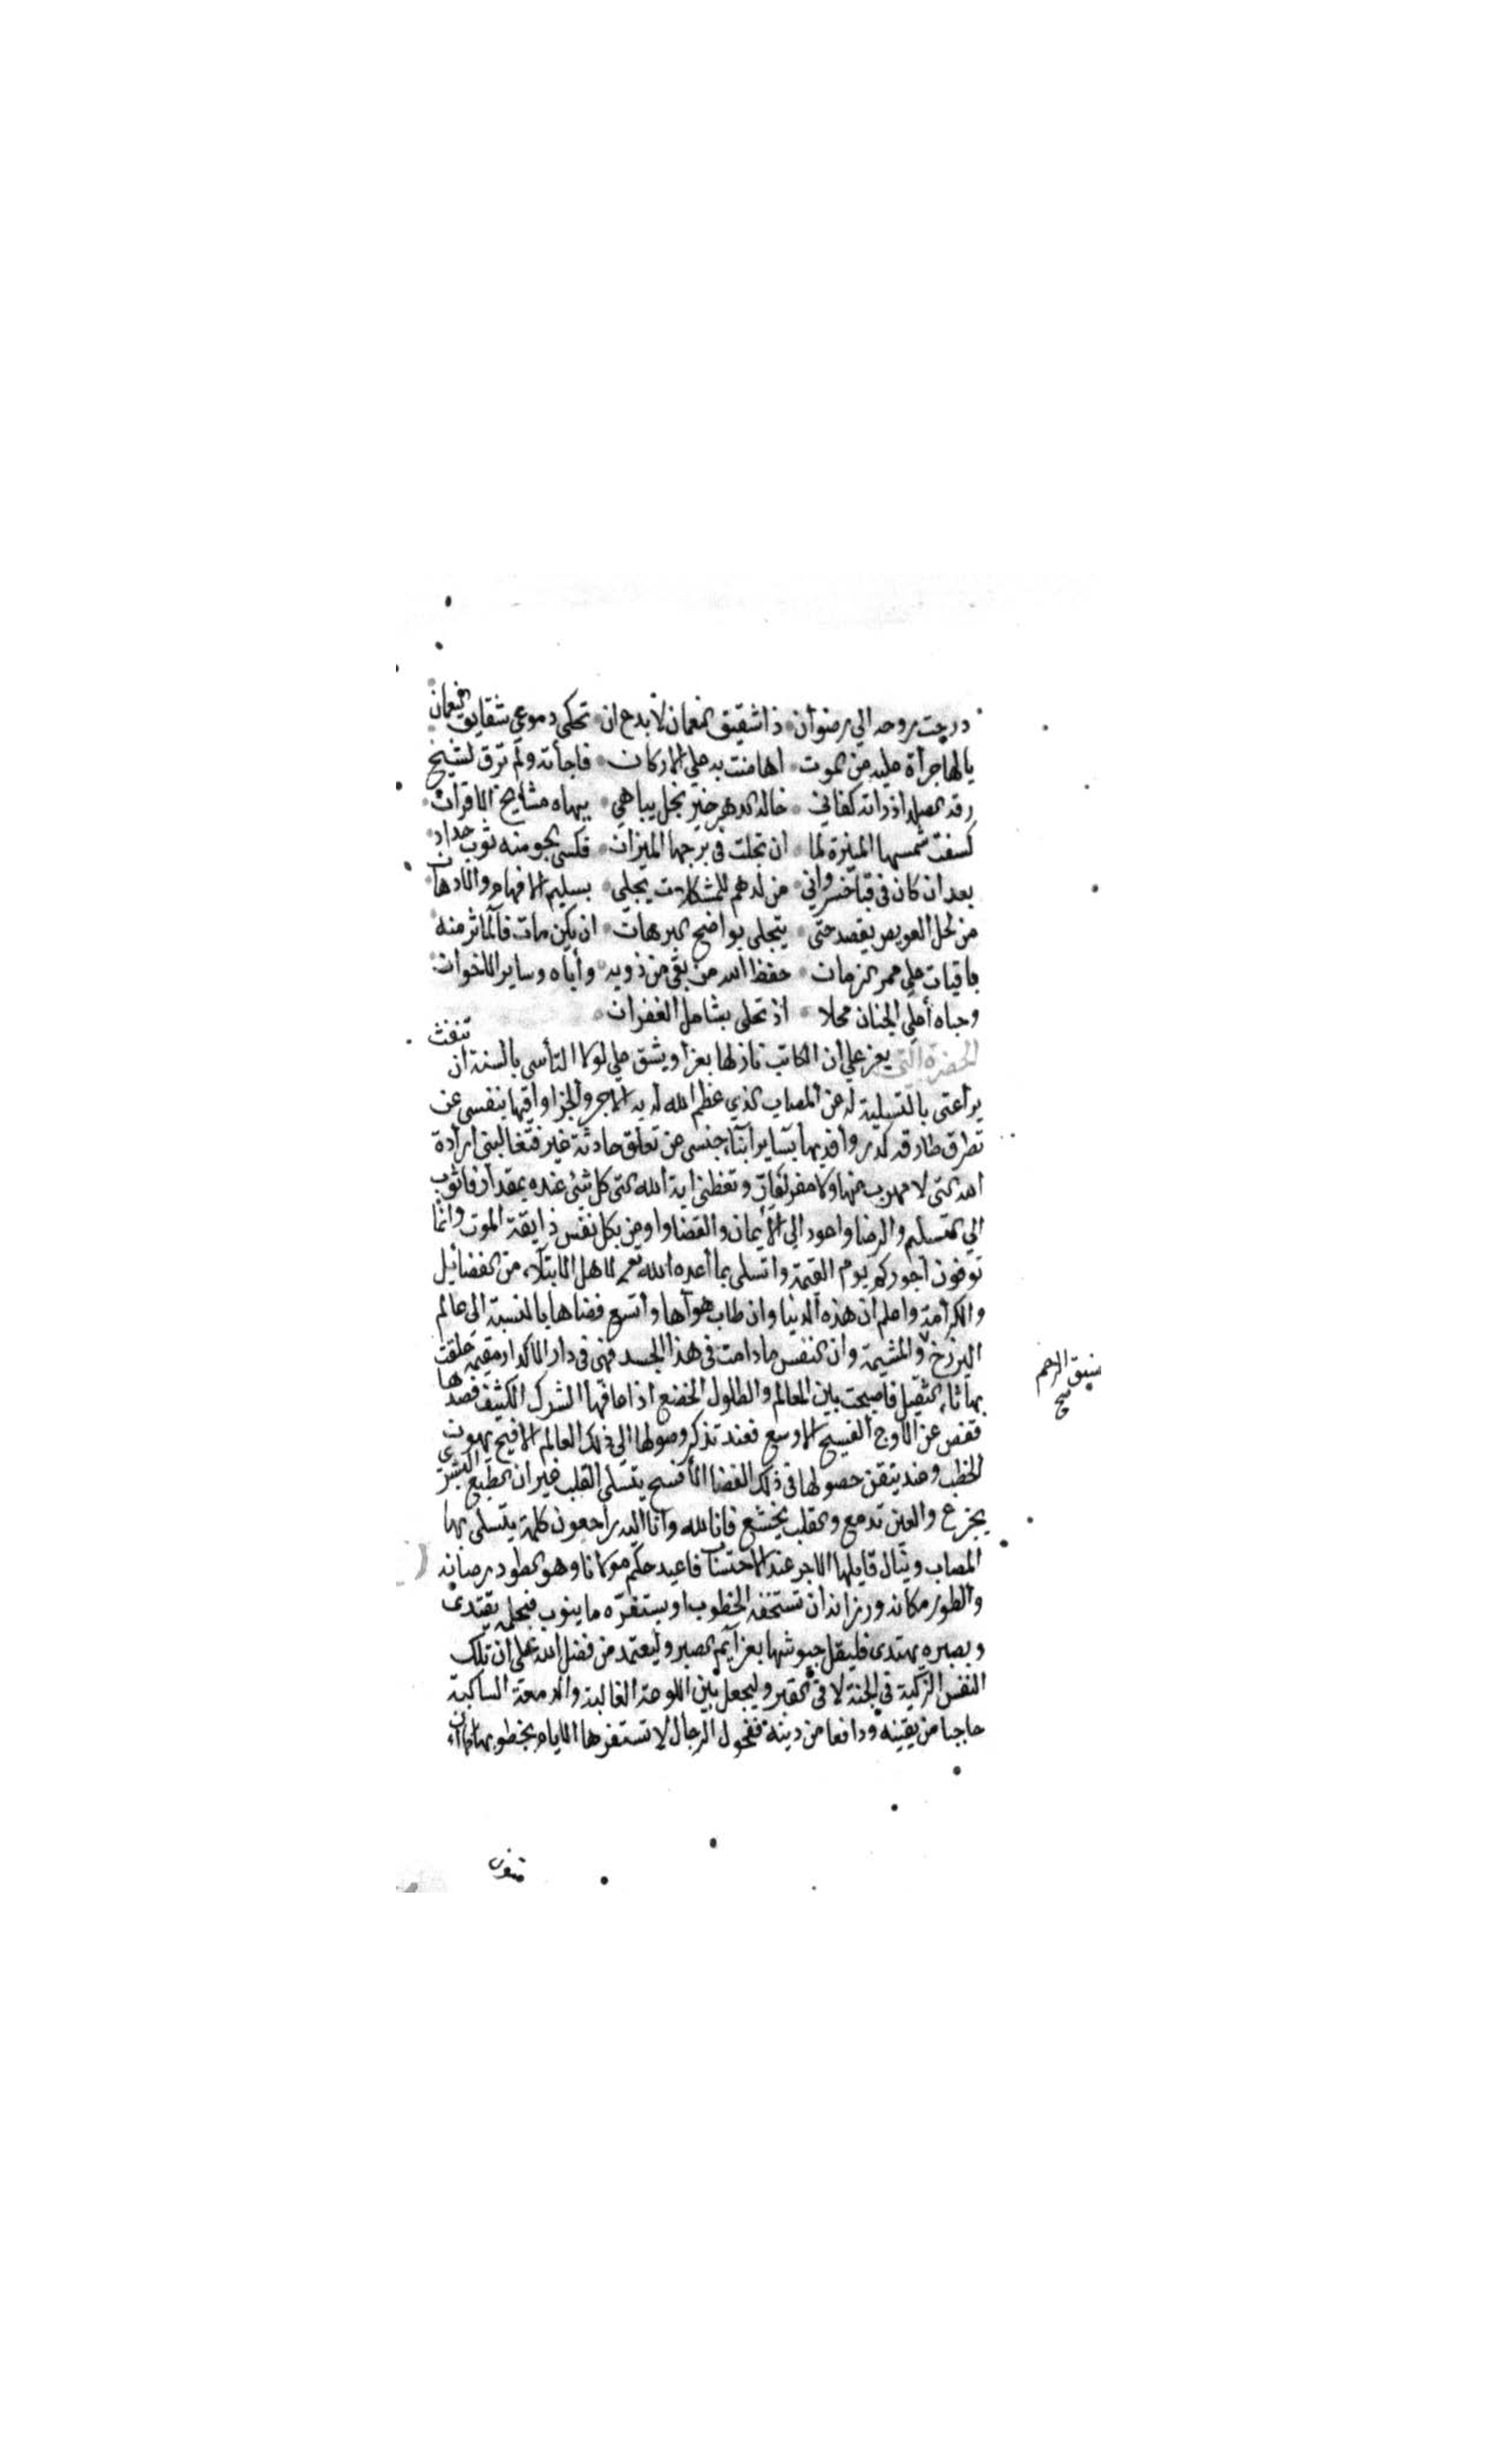 درجت روحه الي رضوان ذا شقيق النعمان لا بدع ان تحكي دموعي شقايق النعمان
يالها جرأة عليه من الموت اهامنت به علي الاركان فاجأته ولم ترق لشيخ
رقد الصلد اذ كفاني خالد الدهر خير نجل يباهي ببهاه مشايخ الاقران
كسفت شمسها المنيرة لما ان تجلت في برجها الميزان فكسى الجو منه ثوب حداد
بعد ان كان في قبا خسرواني من لدهم المشكلات يجلي بسليم الافهام والاذهان
من لحل العويص يقصد حتى يتجلى بواضح البرهان ان يكن مات فالمآثر منه
باقيات علي ممر الزمان حفظ الله من بقي من ذويه وأباه وساير الاخوان
وحباه أعلي الجنان محلا اذ تحلى بشامل الغفران
الحضرة التي يعز علي ان الكاتب نازلها بعزا ويشق علي لولا التأسي بالسنة ان تنفث
يراعتي بالتسلية له عن المصاب الذي عظم الله لديه الاجر والجزا واقيها بنفسي عن
تطرق طارقه كدر وافديها بساير أبناء جنسي من تعلق حادثة غير فتغالبني ارادة
الله التي لا مهرب منها ولا مفر وتعظني اية الله التي كل شئ عنده بمقدار فاثوب
الي التسليم والرضا واعود الي الايمان والقضا واومن بكل نفس ذايقة الموت وانما
توفون اجوركم يوم القيمة واتسلى بما أعده الله تعم لاهل الابتلاء من الفضائل
والكرامة واعلم ان هذه الدنيا وان طاب هوآها وأتسع فضاها بالنسبة الي عالم
البرزخ والمشيمة وان النفس ما دامت في هذا الجسد فهي في دار الاكدار مقيمة علقت
بها ثاء الثقيل فاصبحت بين المعالم والطلول الخضع اذ اعاقها الشرك الكثيف فصدها
قفص عن الاوج الفسيح الاوسع فعند تذكر وصولها الي ذلك العالم الافيح يهون
الخطب وعند يتقن حصولها في ذلك الفضا الأفسح يتسلى القلب غير ان الطبع البشري
يجزع والعين تدمع والقلب يخشع فانا لله وانا اليه راجعون كلمة يتسلى بها
المصاب وينال قايلها الاجر عند الاحتساب فاعيد حلم مولانا وهو الطود رصانه
والطور مكانه ورزانه ان تستخفه الخطوب او يستفزه ما ينوب فبحلمه يقتدى
وبصبره يهتدى فليقل جيوشها بعزآيم الصبر وليعتمد من فضل الله على ان تلك
النفس الزكية في الجنة لا في القبر وليجعل بين اللوعة الغالبة والدمعة الساكبة
حاجبا من يقينه ودافعا من دينه ففحول الرجال لا تستفزها الايام بخطوبها كما ان
ضيق الرحم
صح
متون